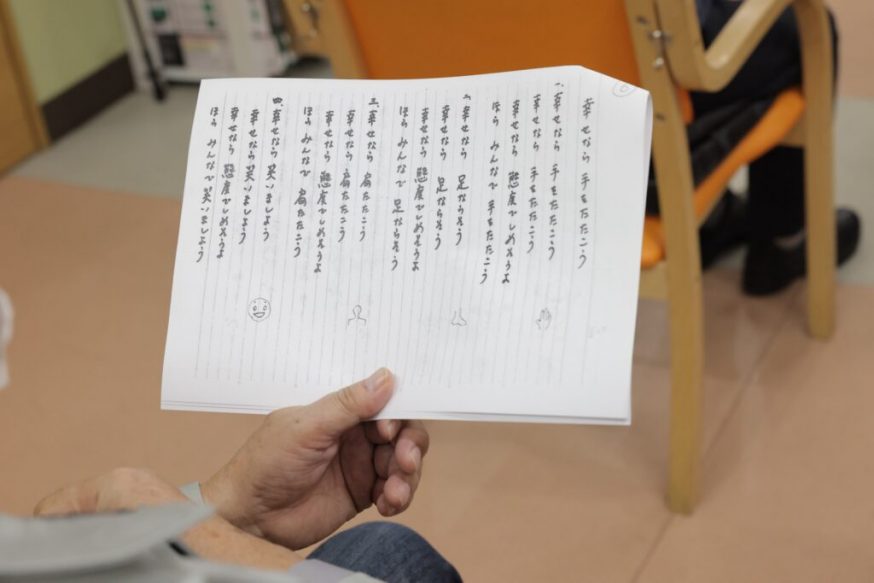 幸せなら 手をたたこう
一、幸せなら 手をたたこう
幸せなら 手をたたこう
幸せなら 態度でしめそうよ
ほら みんなで 手をたたこう
二、幸せなら 足ならそう
幸せなら 足ならそう
幸せなら 態度でしめそうよ
ほら みんなで 足ならそう
三、幸せなら 肩たたこう
幸せなら 肩たたこう
幸せなら 態度でしめそうよ
ほら みんなで 肩たたこう
四、幸せなら 笑いましょう
幸せなら 笑いましょう
幸せなら 態度でしめそうよ
ほら みんなで 笑いましょう